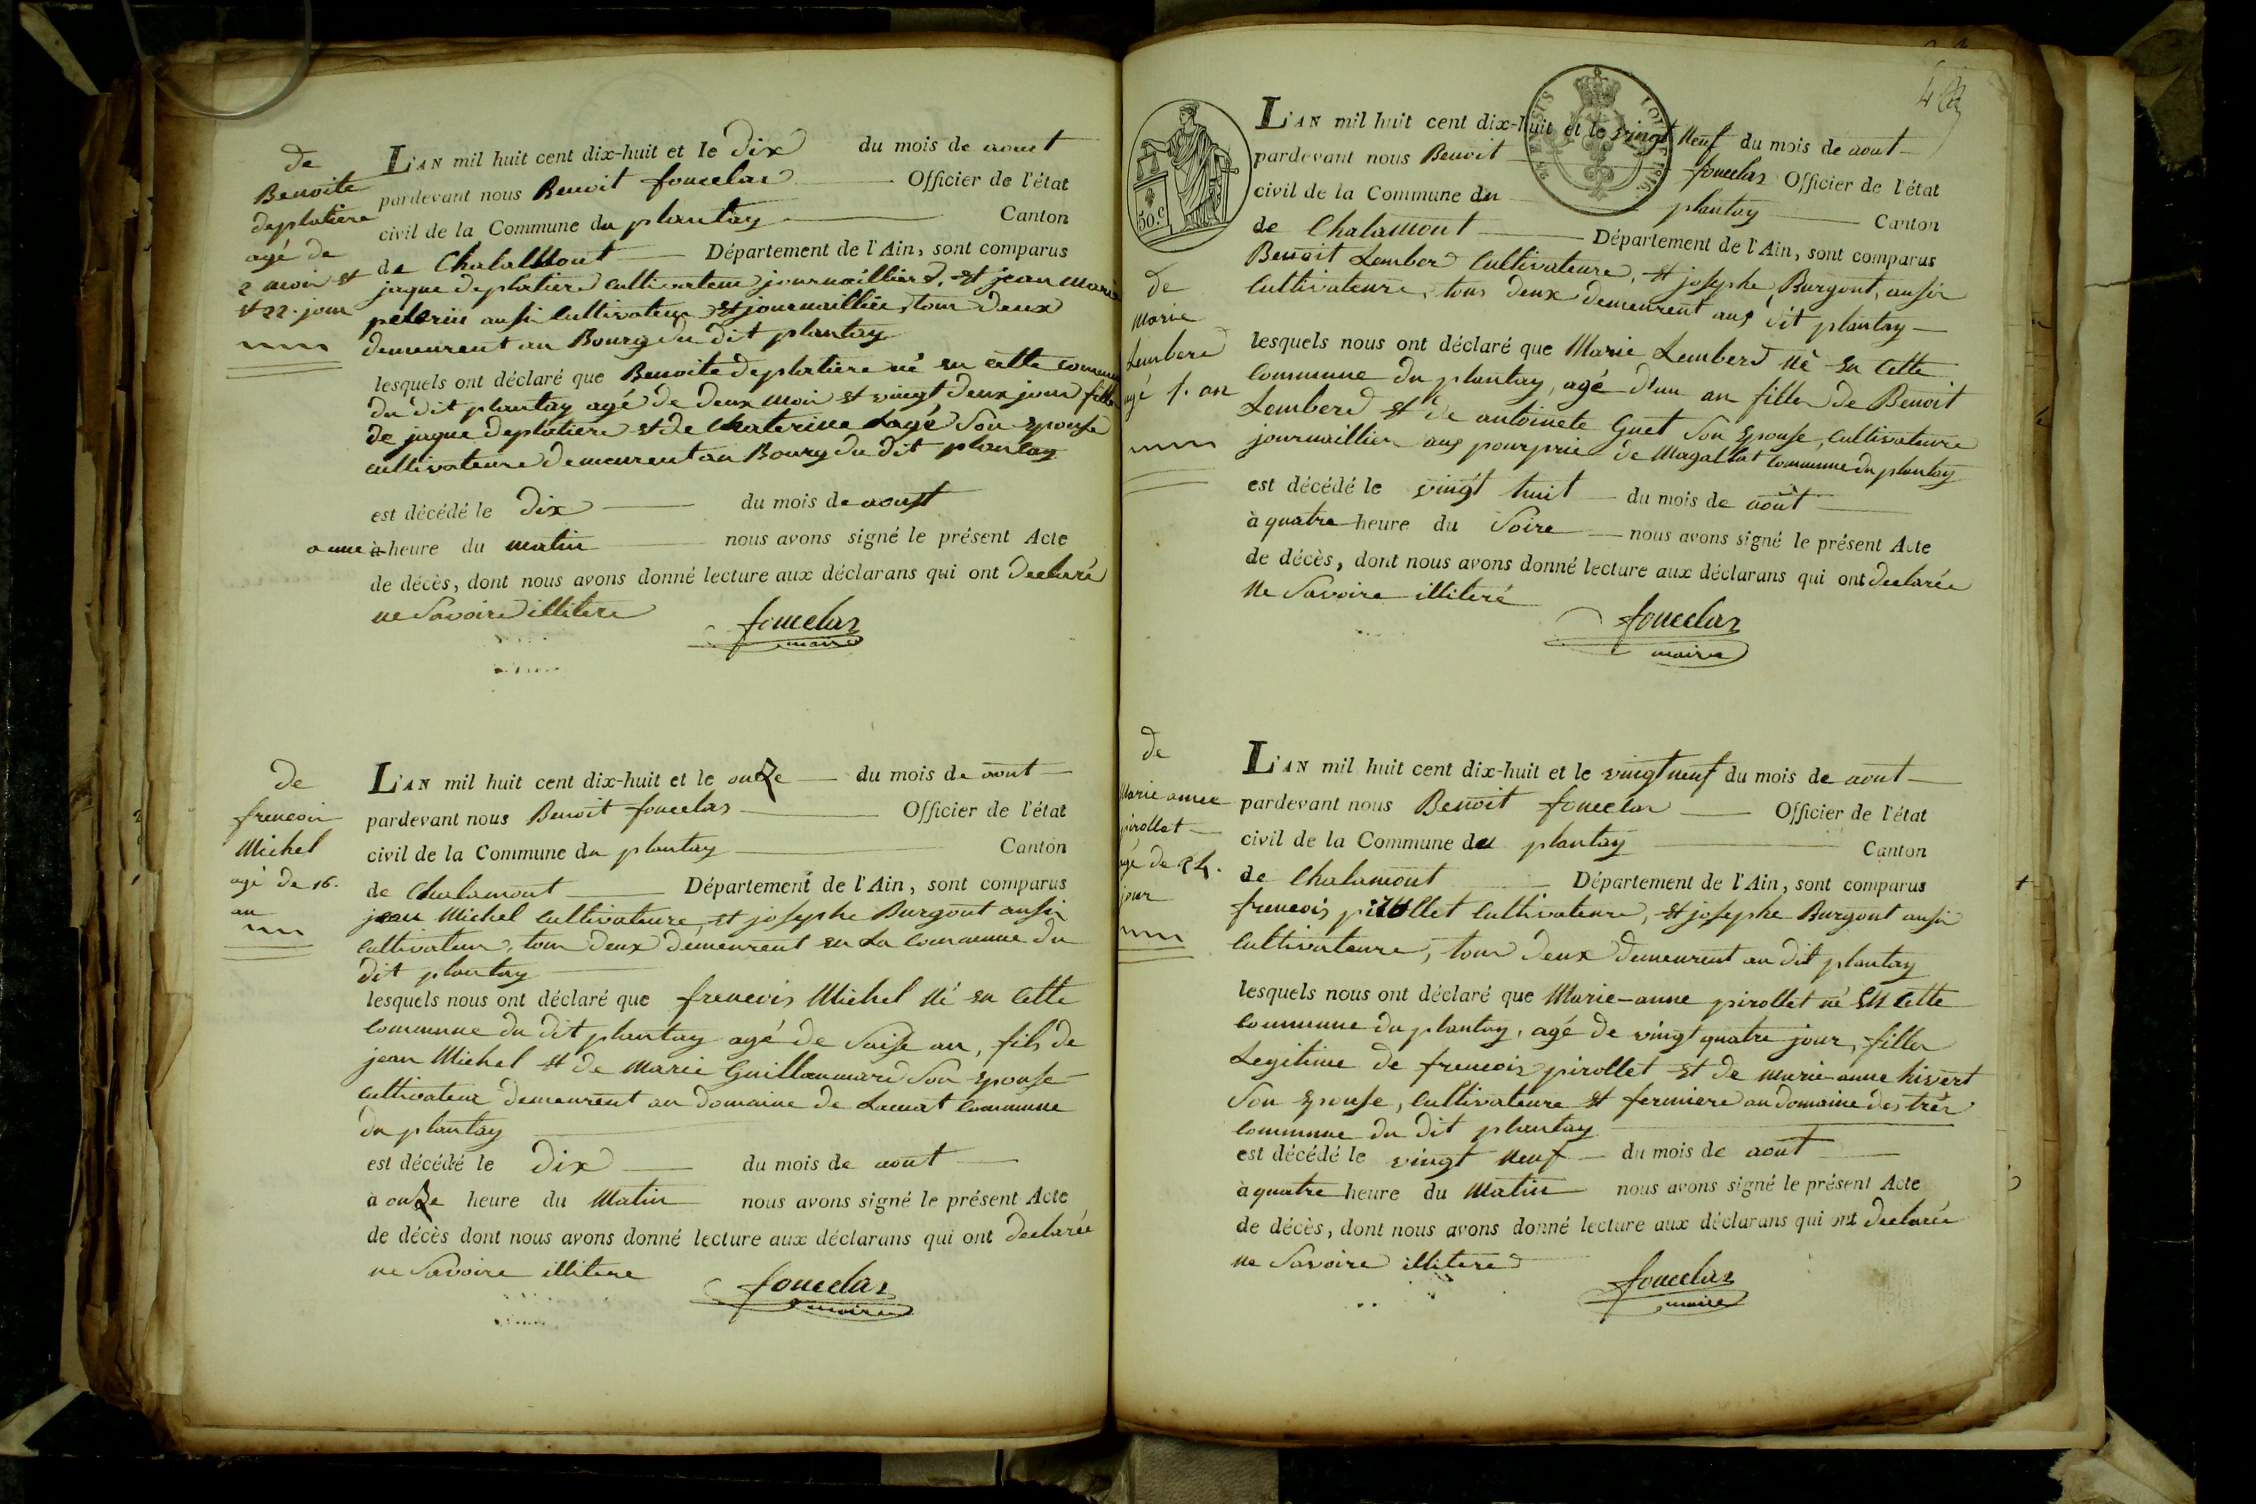 de
Benoite
deplatiere
agé de
2 moir et
et 22. jour
L'AN mil huit cent dix-huit et le dix du mois de aoust
pardevant nous Benoit fouuelas Officier de l'état
civil de la Commune du plantay Canton
de Chalamont Département de l'Ain, sont comparus
jaque deplatiere cultivateur journaillier, et jean marie
pelerin ausi cultivateur et journaillie, tous deux
demeurent au Bourg du dit plantay
lesquels ont déclaré que Benoite deplatiere né en cette commune
du dit plantay agé de deux moir et vingt deux jour fille
de jaque deplatiere et de Chaterine Lagé Son Epouse
cultivateure demeurent au Bourg du dit plantay
est décédé le dix du mois de aoust
à une heure du matin nous avons signé le présent Acte
de décès, dont nous avons donné lecture aux déclarans qui ont declaré
ne Savoire illitere
fouuelas
maire
de
frencoir
Michel
agé de 16.
an
L'AN mil huit cent dix-huit et le onze du mois de aout
pardevant nous Benoit fouuelas Officier de l'état
civil de la Commune du plantay Canton
de Chalamont Département de l'Ain, sont comparus
jean Michel Cultivateure et josephe Burgout ausir
Cultivateur, tour deux demeurent en La Commune du
dit plantay
lesquels nous ont déclaré que frencois Michel Né en Cette
Commune du dit plantay agé de Saise an, fils de
jean Michel et de Marie Guillaumard Son Epouse
Cultivateur demeurent au domaine de Commune
du plantay
est décédé le dix du mois de aout
à onze heure du Matin nous avons signé le présent Acte
de décès dont nous avons donné lecture aux déclarans qui ont declarée
ne Savoire illitere
fouuelas
maire
50.C
LOUI 1816.
L'AN mil huit cent dix-huit et le vingt Neuf du mois de aout
pardevant nous Benoit fouuelas Officier de l'état
civil de la Commune du plantay Canton
de Chalamont Département de l'Ain, sont comparus
Benoit Lamberd Cultivateure, et josephe Burgout, ausir
Cultivateure, tous deux demeurent aus dit plantay
de
Marie
Lamberd
agé 1. an
lesquels nous ont déclaré que Marie Lamberd Né en Cette
Commune du plantay, agé d'un an filler de Benoit
Lamberd et de antoinete Guet Son Epouse, Cultivateure
journaillier aus pourprie de Magallat Commune du plantay
est décédé le vingt huit du mois de août
à quatre heure du Soire nous avons signé le présent Acte
de décès, dont nous avons donné lecture aux déclarans qui ont declarée
Ne Savoire illiteré
fouuelas
maire
de
Marie anne
pirollet
agé de 24.
jour
L'AN mil huit cent dix-huit et le vingt neuf du mois de aout
pardevant nous Benoit fouuelas Officier de l'état
civil de la Commune du plantay Canton
de Chalamont Département de l'Ain, sont comparus
frencois pirollet Cultivateure, et josephe Burgout ausir
Cultivateure, tour deux demeurent au dit plantay
lesquels nous ont déclaré que Marie-anne pirollet né EN Cette
Commune du plantay, agé de vingt quatre jour, filler
Legitime de frencois pirollet et de marie anne hivert
Son Epouse, Cultivateure et fermiere au domaine des
Commune du dit plantay
est décédé le vingt Neuf du mois de aout
à quatre heure du Matin nous avons signé le présent Acte
de décès, dont nous avons donné lecture aux déclarans qui ont declarée
ne Savoire illitere
fouuelas
maire